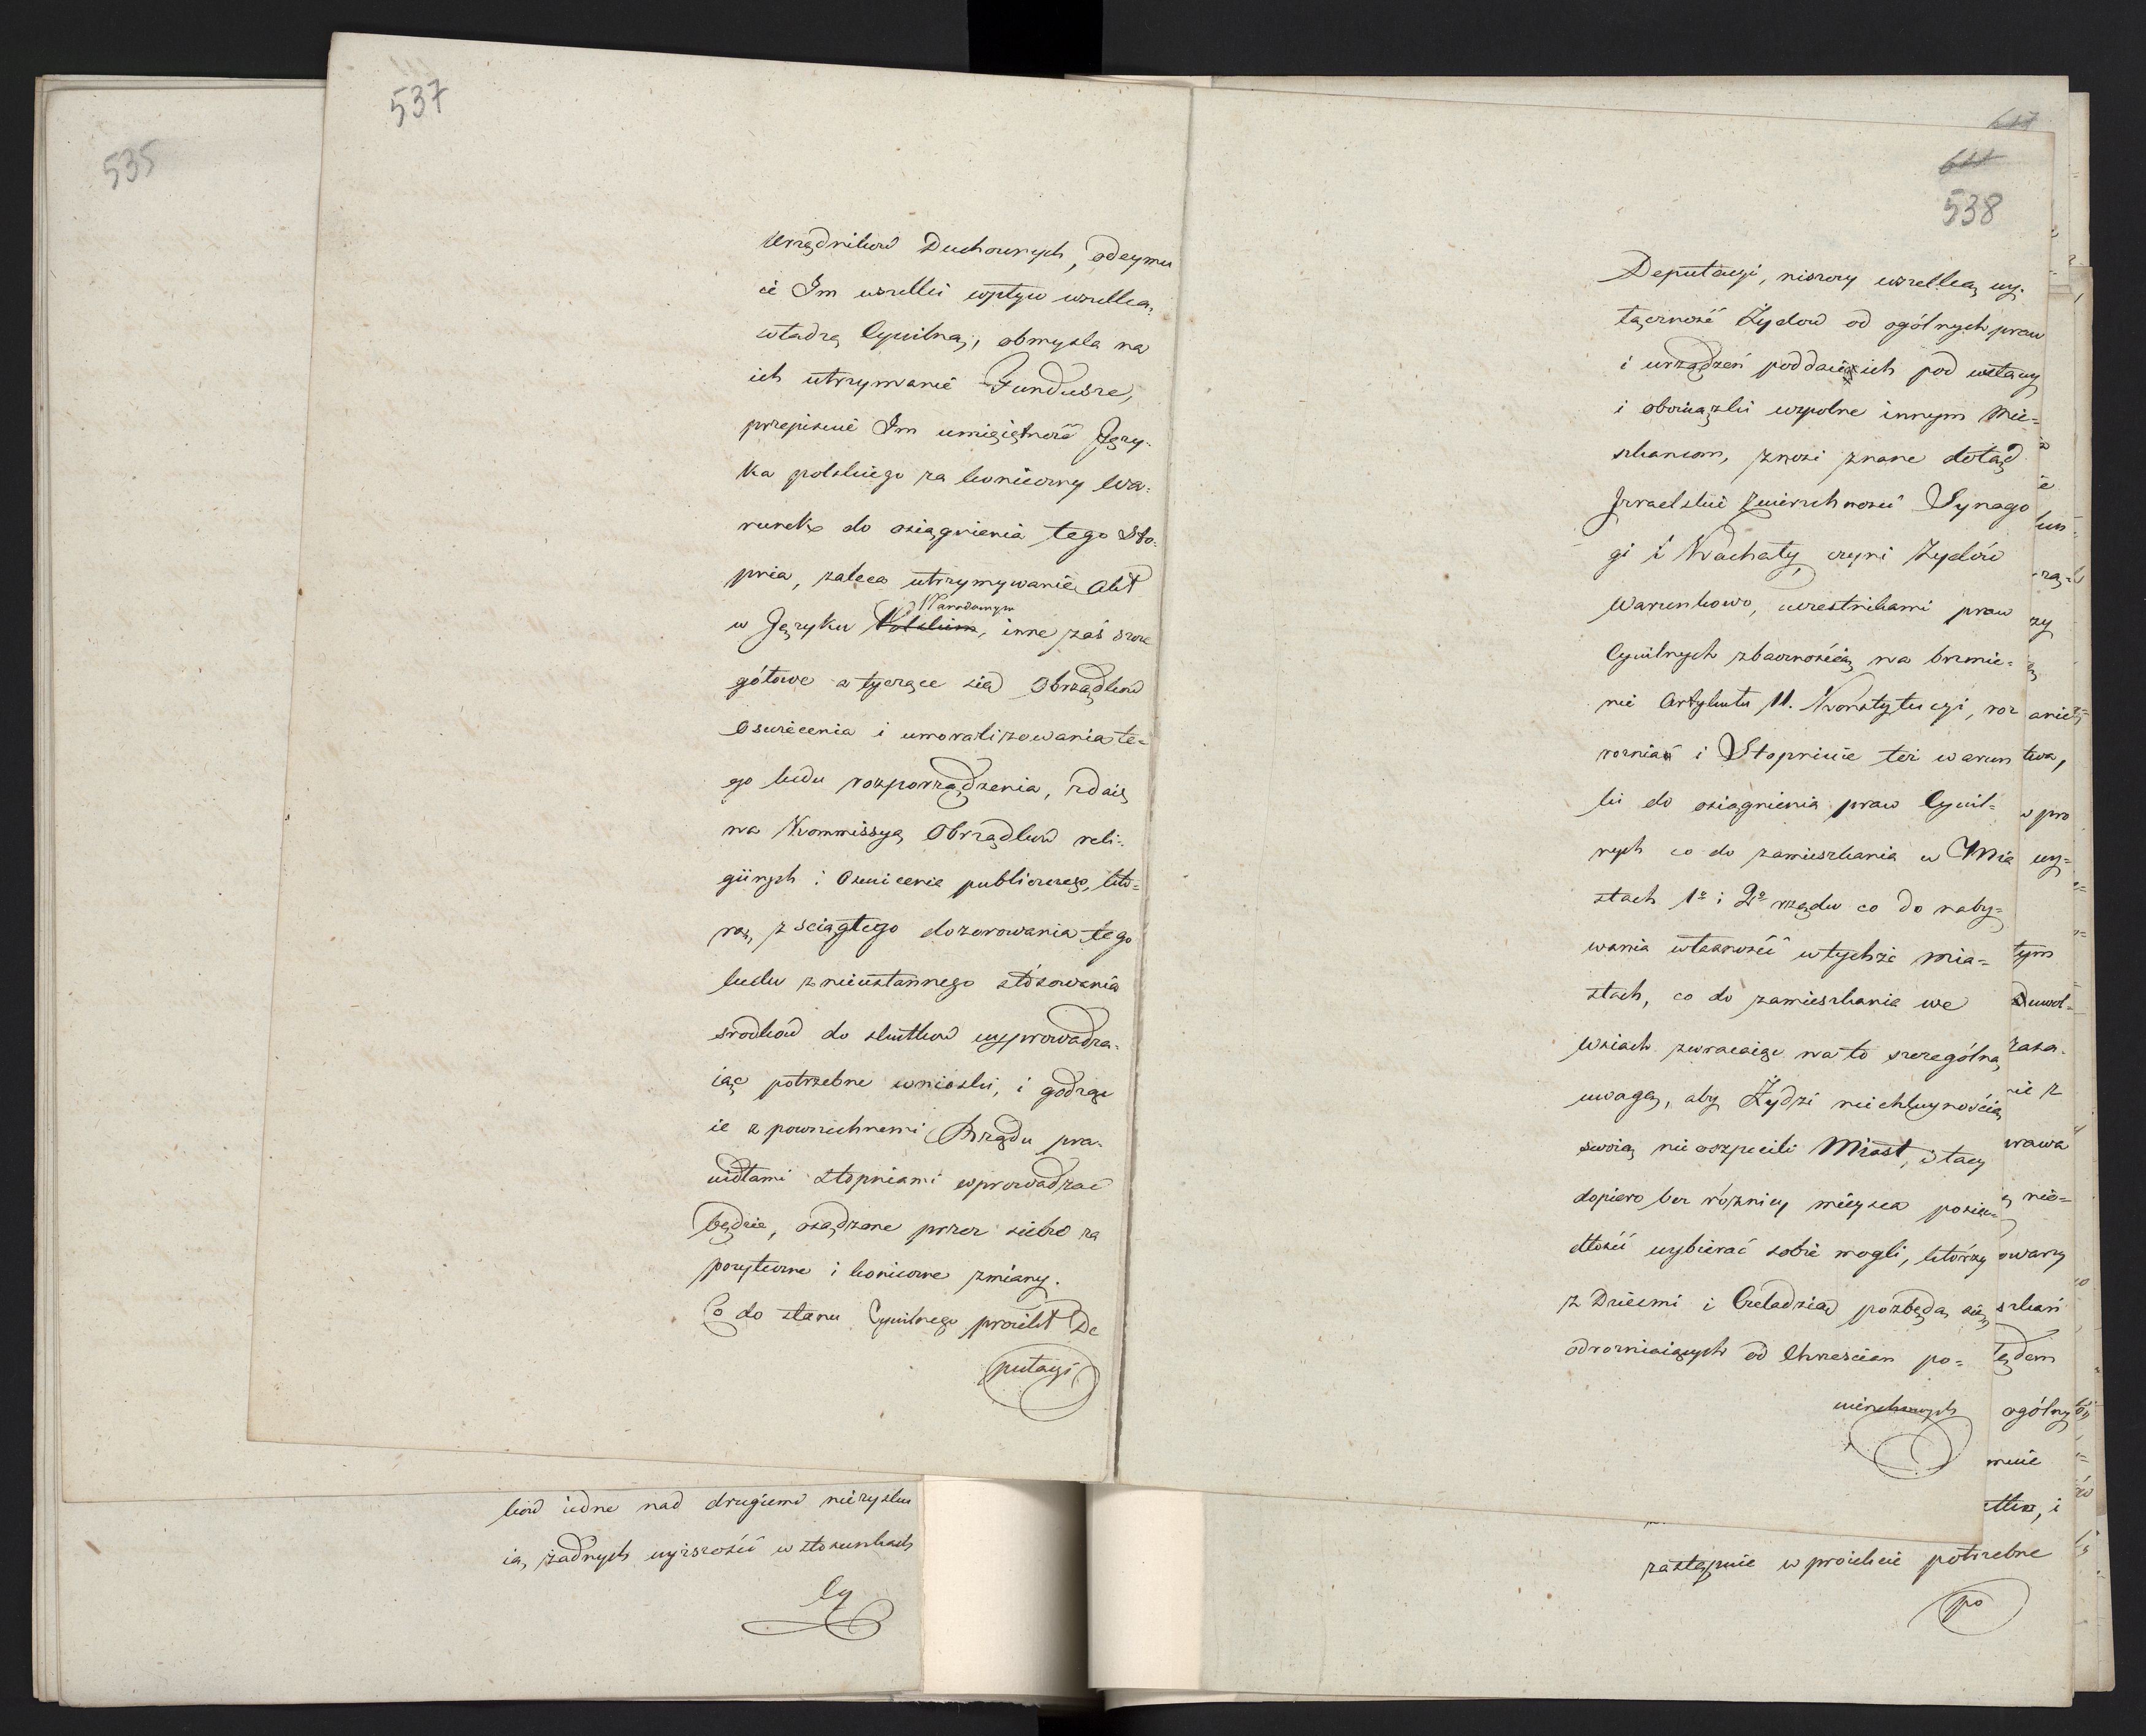 535
537
Urzędników Duchownych, odeymu
ie Im wszelki wpływ wszelką
władzę Cywilną, obmyśla na
ich utrzymanie Fundusze,
przepisuie Im umieiętność Ięzy-
ka polskiego za konieczny wa-
runek do osiągnienia tego Sto-
pnia, zaleca utrzymywanie Akt
w Ięzyku Polskim, inne zaś szcze
Narodowym
gółowe a tyczące się Obrządków
Oświecenia i umoralizowania te-
go ludu rozporządzenia, zdaie
na Kommissyą Obrządków reli-
giinych i Oświecenia publicznego, któ-
ra, z sciągłego dozorowania tego
ludu z nieustannego stósowania
srodków do skutków wyprowadza-
iąc potrzebne wnioski, i godząc
ie z powszechnemi Rządu pra-
widłami stopniami wprowadzać
będzie, osądzone przez siebie za
pożyteczne i konieczne zmiany.
Co do stanu Cywilnego proiekt De
putacyi
ków iedne nad drugiemi niezysku
ią, żadnych wyższości w stosunkach
Cy
617
611
538
Deputacyi, niszczy wszelką wy-
łączność Żydów od ogólnych praw
i urządzeń poddaie ich pod ustawy
i obowiązki wspólne innym Mie-
szkancom, znosi znane dotąd
Izraelskie Zwierzchności Synago
gi i Kachały, czyni Żydów
Warunkowo, uczestnikami praw
Cywilnych zbacznością na brzmie-
nie Artykułu 11. Konstytucyi, roz
rożnia i Stopniuie też warun
ki do osiągnienia praw Cywil-
nych co do zamieszkania w Mia
stach 1o i 2o rzędu co do naby-
wania własności w tychże mia-
stach, co do zamieszkania we
Wsiach zwracaiąc na to szczególną
uwagę, aby Żydzi niechluynością
swoią nie oszpecili Miast, i tacy
dopiero bez różnicy mieysca posia-
dłości wybierać sobie mogli, którzy
z Dziećmi i Czeladzią pozbędą się
odrozniaiących od Chrzescian po-
wierzchownych
zastępuie w proiekcie potrzebne
po